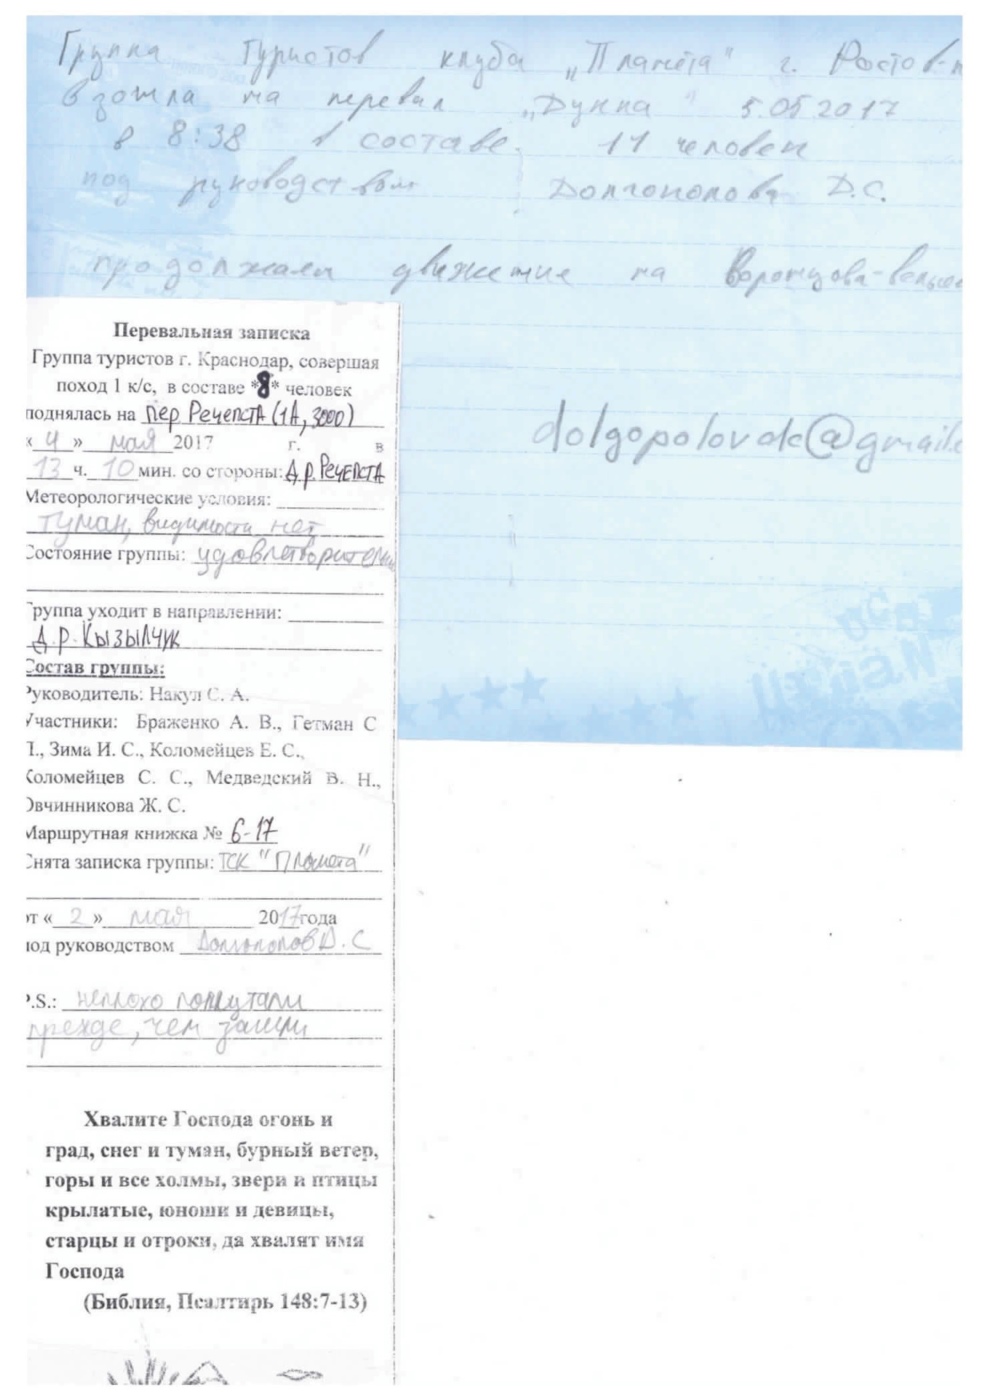 Группа туристов клуба „Планета" г. Ростов-н
взошла на перевал „Дукка" 5.05 2017
в 8:38 в составе 11 человек
под руководством Долгополова Д.С.
продолжаем движение на Воронцова-вельям
dolgopolovdc@gmail.c
Перевальная записка
Группа туристов г. Краснодар, совершая
поход 1 к/с, в составе *8* человек
поднялась на пер Речепста (1А, 3000)
« 4 » мая 2017 г. в
13 ч. 10 мин. со стороны: д.р. Речепста
Метеорологические условия:
туман, видимости нет
Состояние группы: удовлетворителн
Группа уходит в направлении:
д.р. Кызылчук
Состав группы:
Руководитель: Накул С. А.
Участники: Браженко А. В., Гетман С
П., Зима И. С., Коломейцев Е. С.,
Коломейцев С. С., Медведский В. Н.,
Овчинникова Ж. С.
Маршрутная книжка № 6-17
Снята записка группы: ТСК "Планета"
от « 2 » мая 2017года
под руководством Долгополов Д. С
P.S.: неплохо поплутали
прежде, чем зашли
Хвалите Господа огонь и
град, снег и туман, бурный ветер,
горы и все холмы, звери и птицы
крылатые, юноши и девицы,
старцы и отроки, да хвалят имя
Господа
(Библия, Псалтирь 148:7-13)